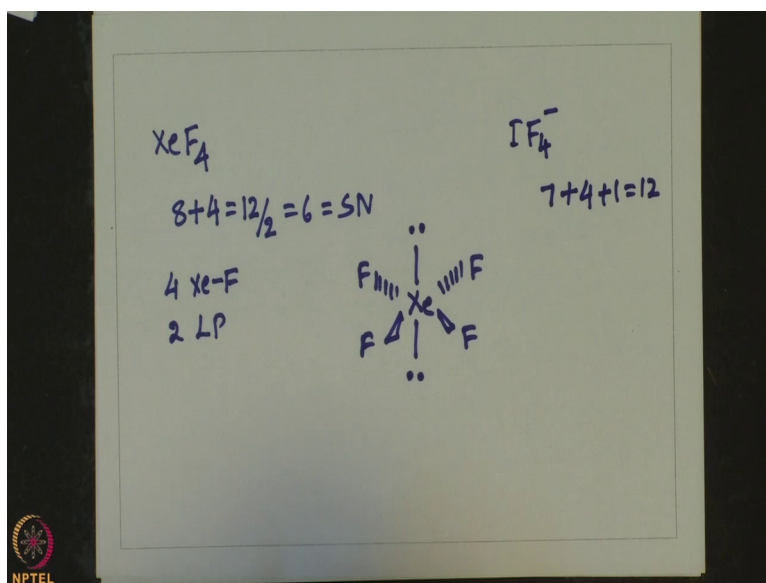 XeF₄
8+4=12/2=6=SN
4 Xe-F
2 LP
IF₄⁻
7+4+1=12
F F
Xe
F F
NPTEL